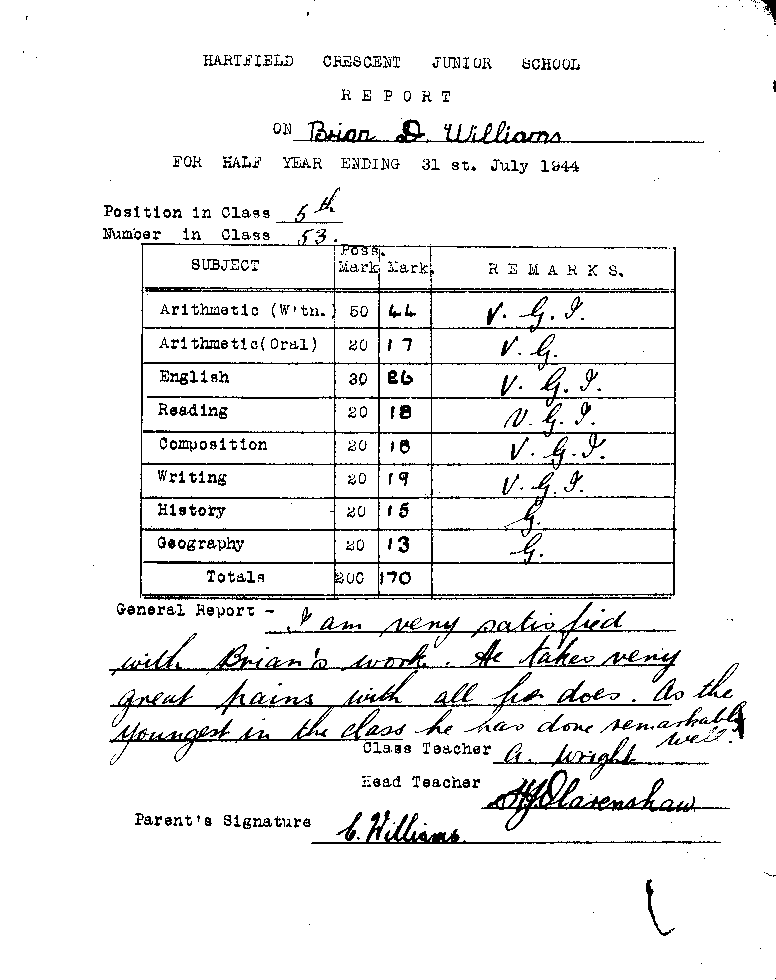 HARTFIELD CRESCENT JUNIOR SCHOOL
REPORT
ON Brian D. Williams
FOR HALF YEAR ENDING 31 st. July 1944
Position in Class 5th
Number in Class 53.
SUBJECT Poss. Mark Mark. REMARKS.
Arithmetic (W'tn.) 50 44 V. G. I.
Arithmetic(Oral) 20 17 V. G.
English 30 26 V. G. I.
Reading 20 18 V. G. I.
Composition 20 18 V. G. I.
Writing 20 19 V. G. I.
History 20 15 G.
Geography 20 13 G.
Totals 200 170
General Report - I am very satisfied
with Brian's work. He takes very
great pains with all he does. As the
youngest in the class he has done remarkably
well.
Class Teacher A. Wright
Head Teacher
Parent's Signature C. Williams.